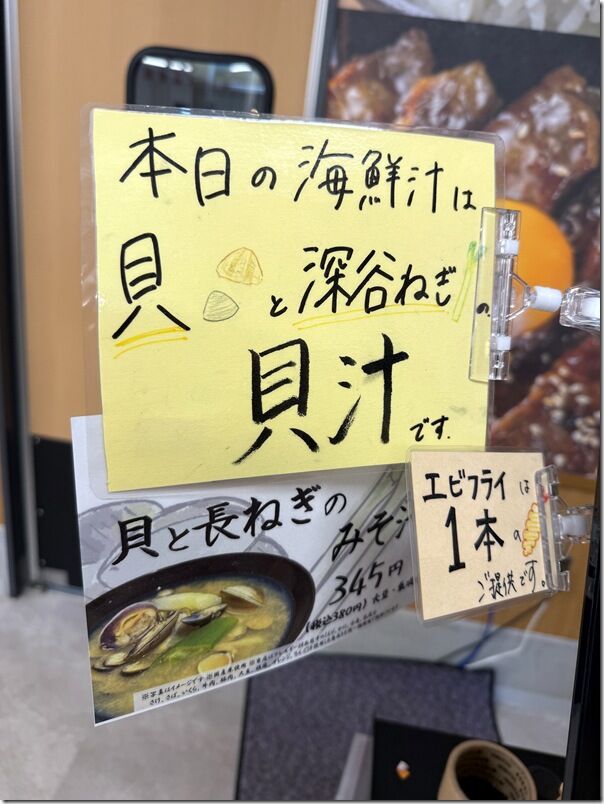 本日の海鮮汁は
貝と深谷ねぎの
貝汁です.
エビフライは
1本の
ご提供です。
貝と長ねぎの
みそ汁
345円
(税込380円)
※写真はイメージです